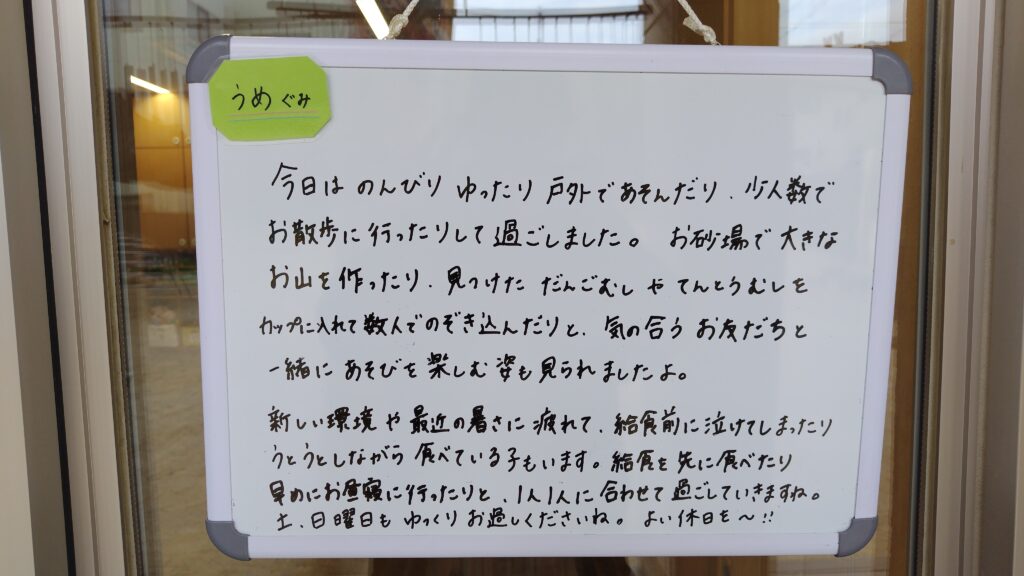 うめ ぐみ
今日は のんびり ゆったり 戸外であそんだり、少人数で
お散歩に行ったりして過ごしました。 お砂場で 大きな
お山を作ったり、見つけた だんごむし や てんとうむしを
カップに入れて数人でのぞき込んだりと、気の合う お友だちと
一緒に あそびを楽しむ姿も見られましたよ。
新しい環境や最近の暑さに疲れて、給食前に泣けてしまったり
うとうとしながら 食べている子もいます。給食を先に食べたり
早めにお昼寝に行ったりと、1人1人に合わせて過ごしていきますね。
土、日曜日も ゆっくりお過しくださいね。 よい休日を〜!!